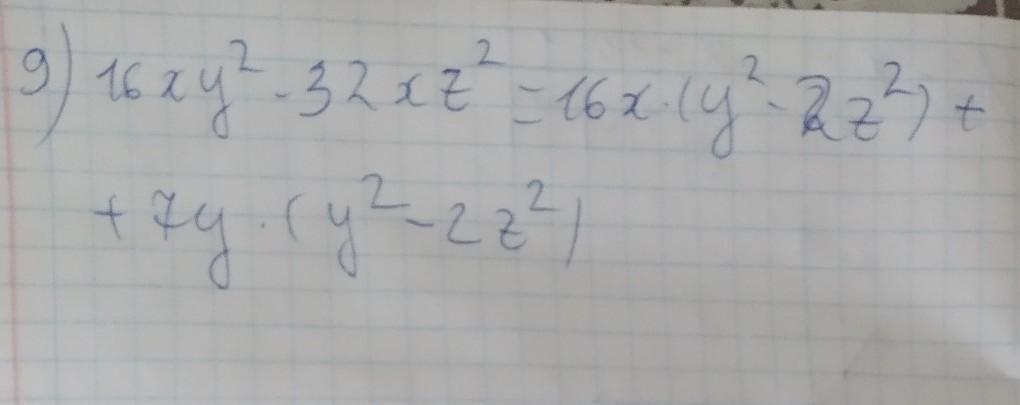 9) 16xy² - 32xz² = 16x·(y² - 2z²) +
+ 7y·(y² - 2z²)